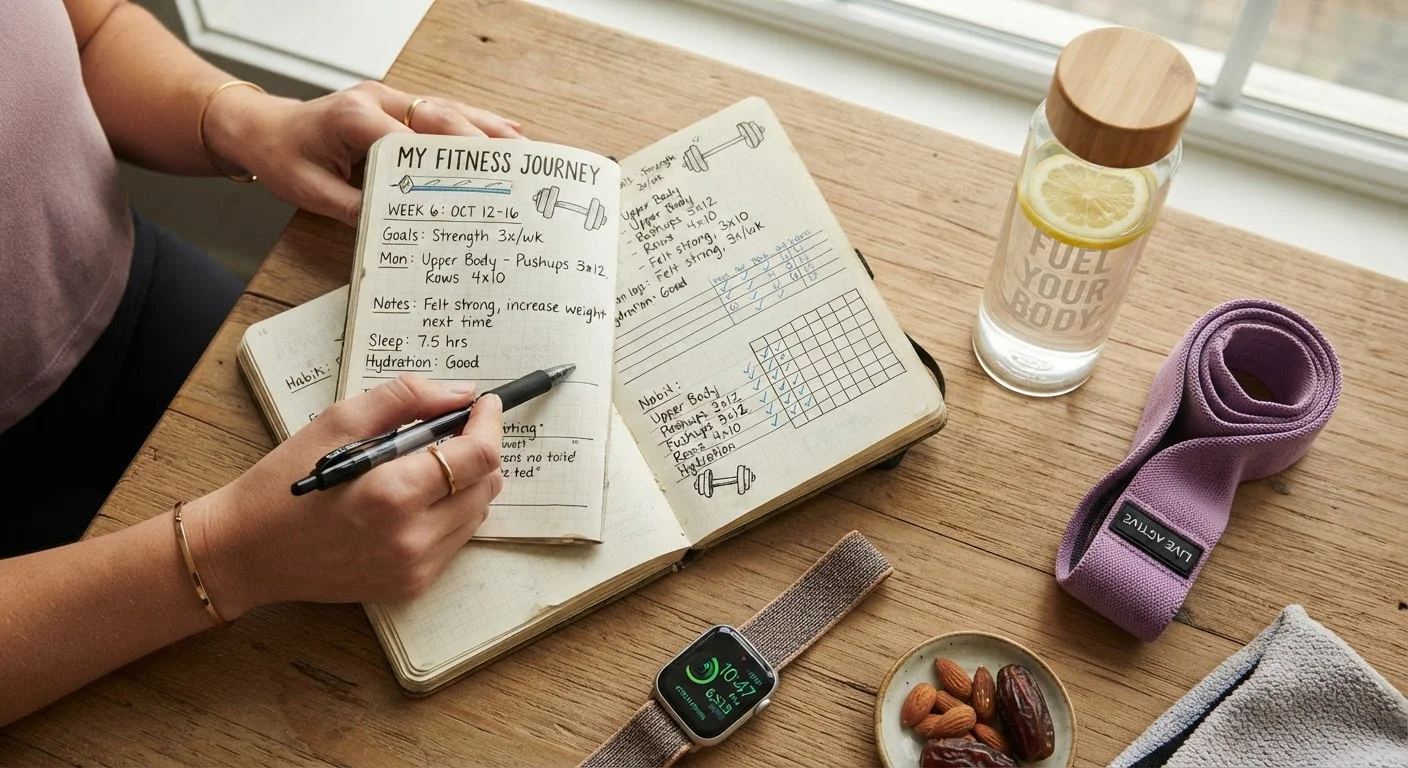 MY FITNESS JOURNEY
WEEK 6: OCT 12-16
Goals: Strength 3x/wk
Mon: Upper Body - Pushups 3x12,
Rows 4x10
Notes: Felt strong, increase weight
next time
Sleep: 7.5 hrs
Hydration: Good
Habik:
Strength
3x/wk
Upper Body
- Upper Body
- Pushups 3x12
- Rows 4x10
- Felt strong, 3x10
- Felt strong, 3x/wk
Good
Nobil:
Upper Body
Pushups 3x12
Fushups 3x12
4x10
Hydration
FUEL
YOUR
BODY
LIVE ACTIVE
10:47